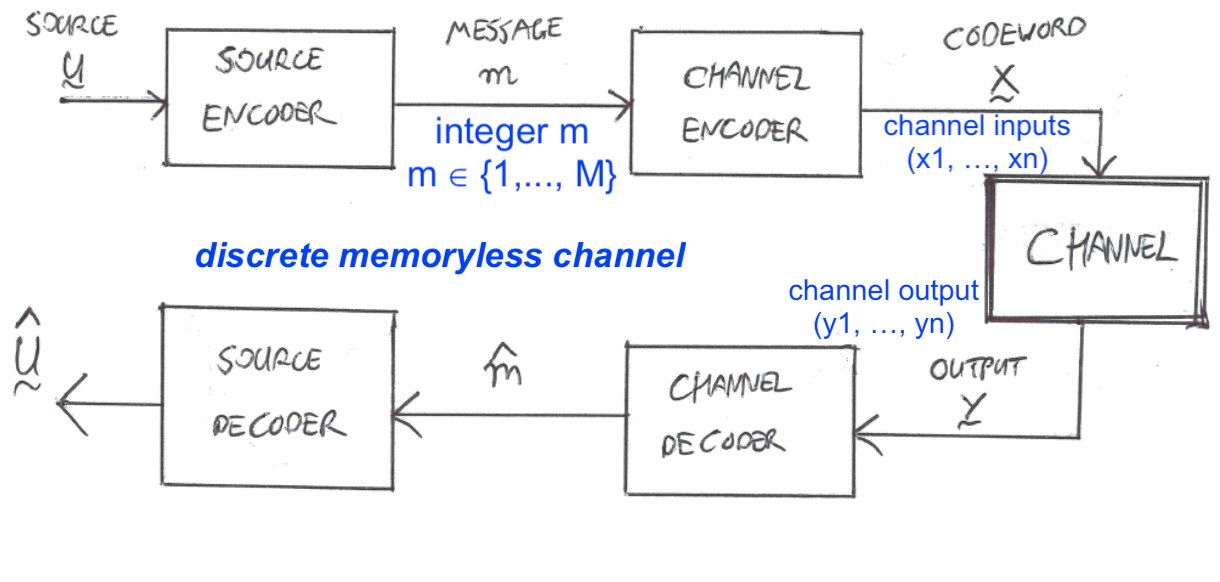 SOURCE
U
SOURCE
ENCODER
MESSAGE
m
integer m
m ∈ {1,..., M}
CHANNEL
ENCODER
CODEWORD
X
channel inputs
(x1, …, xn)
CHANNEL
discrete memoryless channel
channel output
(y1, …, yn)
OUTPUT
Y
CHANNEL
DECODER
m̂
SOURCE
DECODER
Û